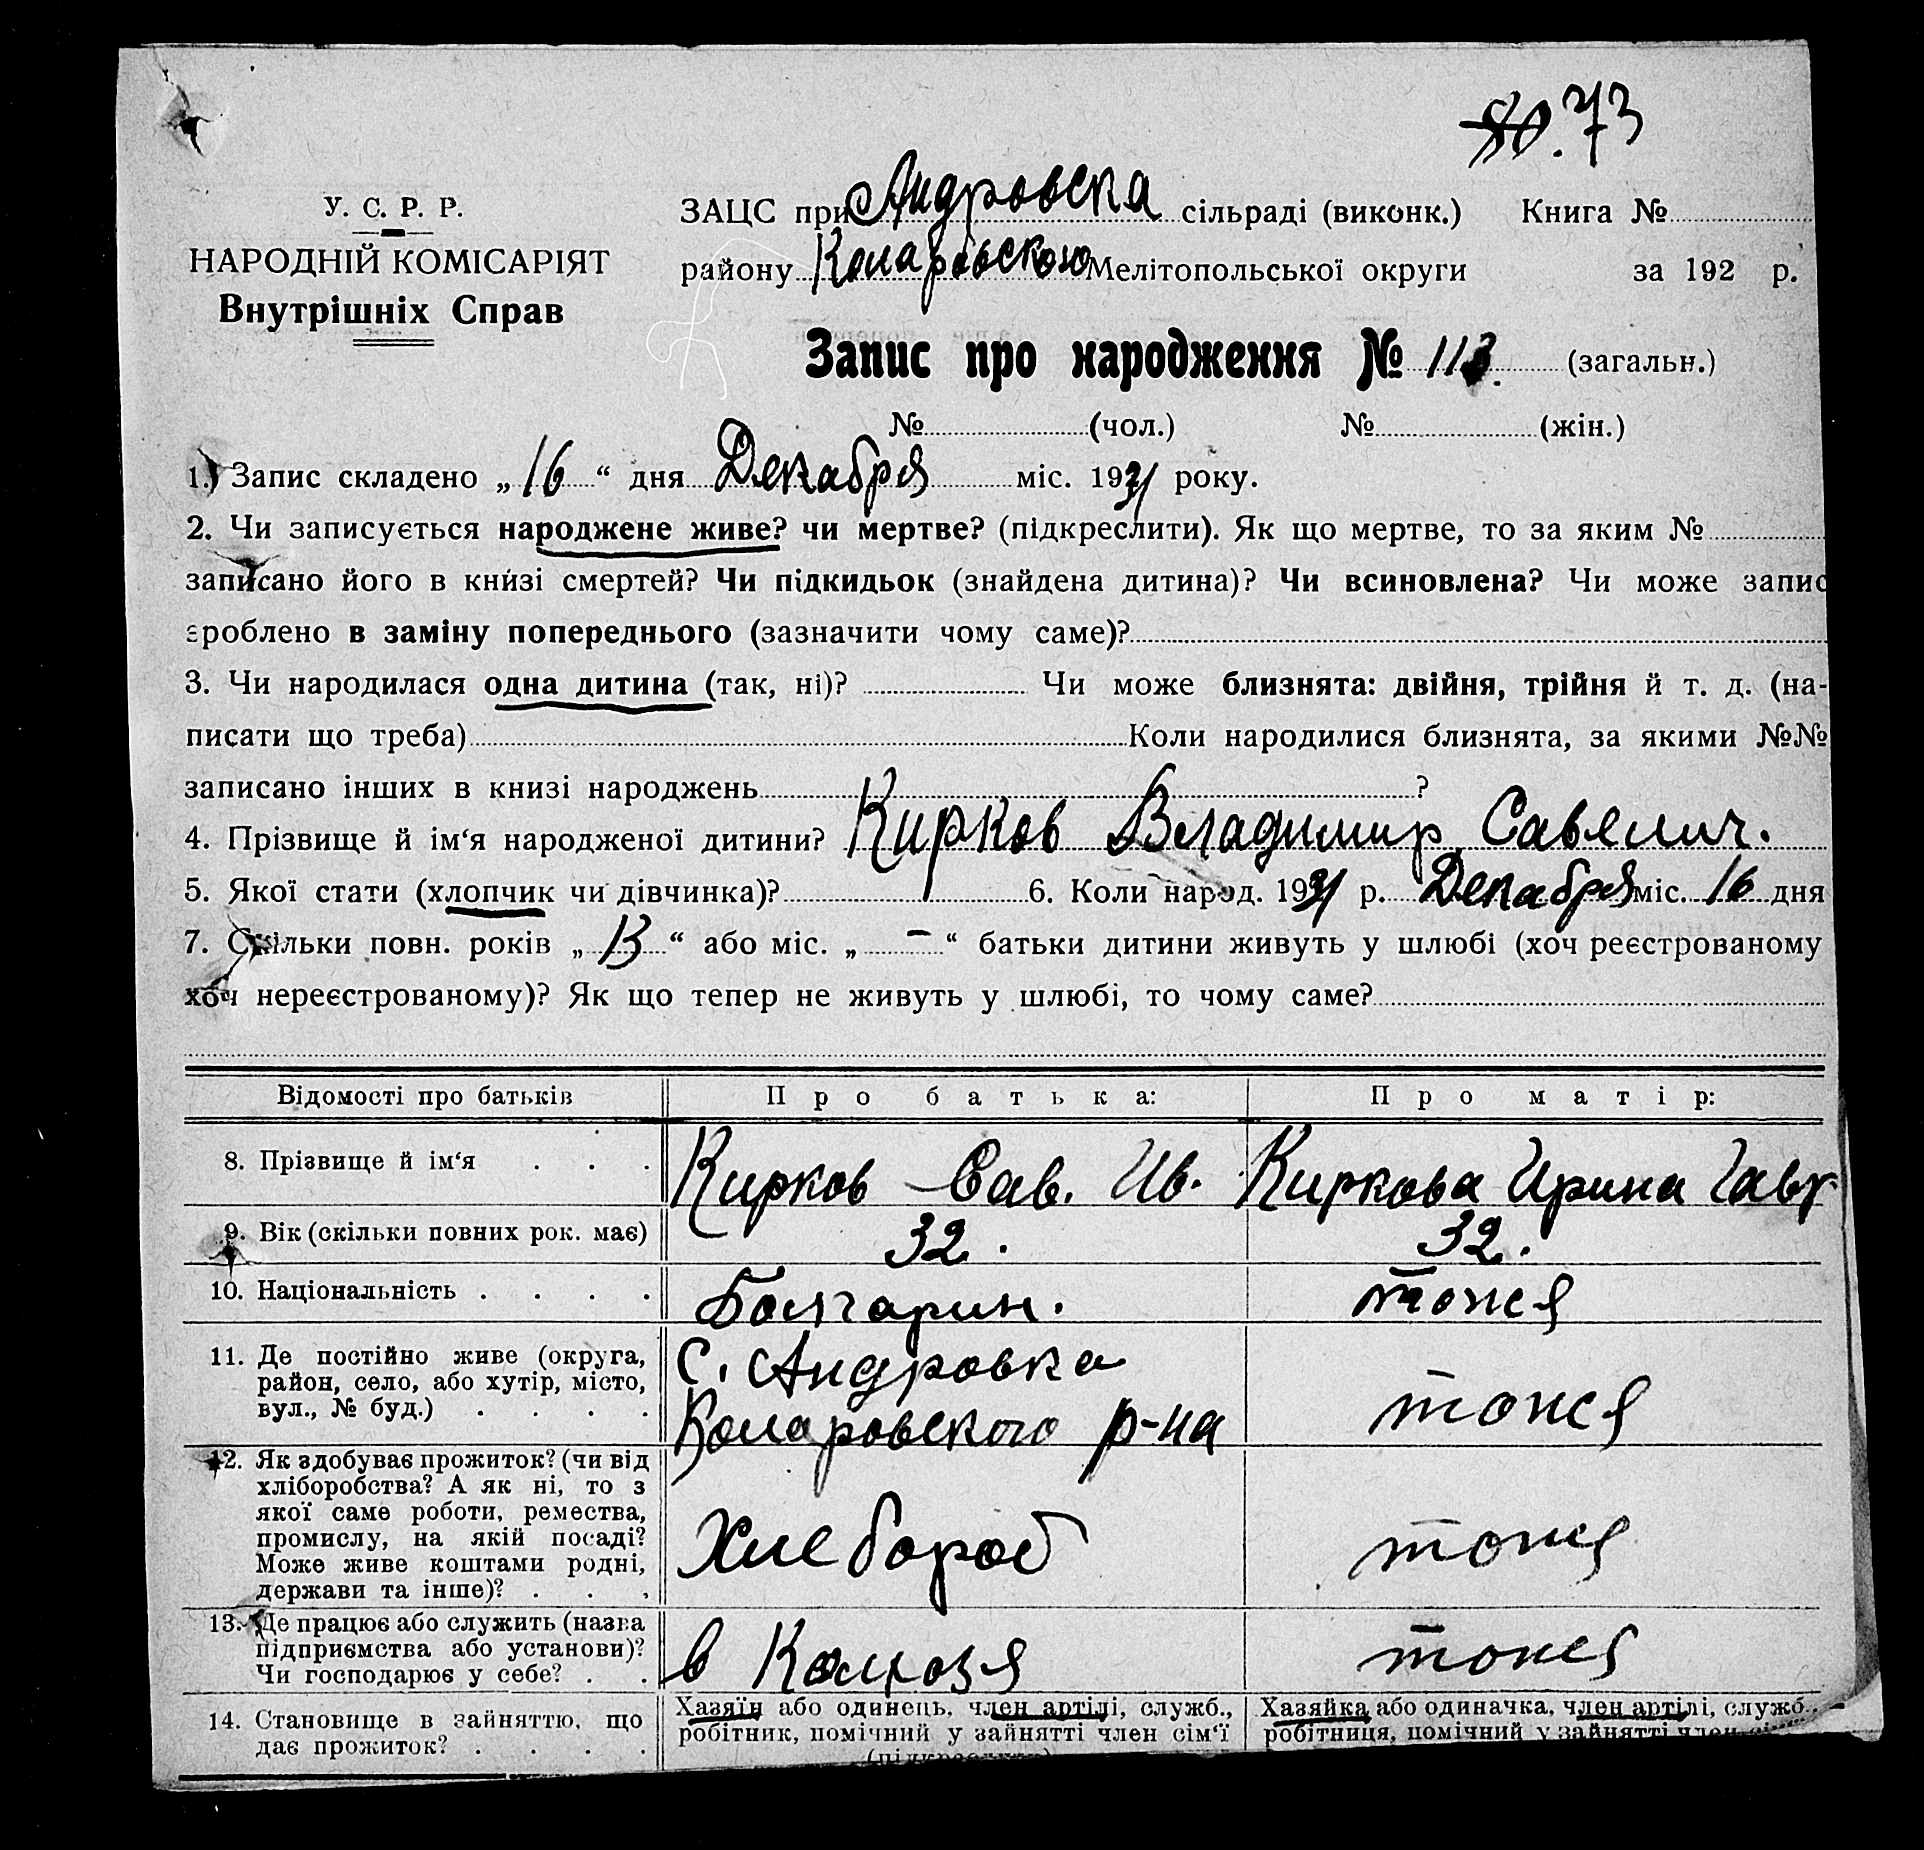 80. 73
У. С. Р. Р.
НАРОДНІЙ КОМІСАРІЯТ
Внутрішніх Справ
ЗАЦС при Андровска сільраді (виконк.) Книга №
району Коларовского Мелітопольської округи за 192 р.
Запис про народження № 113. (загальн.)
№ (чол.) № (жін.)
1. Запис складено „16“ дня Декабря міс. 1931 року.
2. Чи записується народжене живе? чи мертве? (підкреслити). Як що мертве, то за яким №
записано його в книзі смертей? Чи підкидьок (знайдена дитина)? Чи всиновлена? Чи може запис
зроблено в заміну попереднього (зазначити чому саме)?
3. Чи народилася одна дитина (так, ні)? Чи може близнята: двійня, трійня й т. д. (на-
писати що треба) Коли народилися близнята, за якими №№
записано інших в книзі народжень ?
4. Прізвище й ім‘я народженої дитини? Кирков Владимир Савелич.
5. Якої стати (хлопчик чи дівчинка)? 6. Коли народ. 1931 р. Декабря міс. 16 дня
7. Скільки повн. років „13“ або міс. „-“ батьки дитини живуть у шлюбі (хоч реєстрованому
хоч нереєстрованому)? Як що тепер не живуть у шлюбі, то чому саме?
Відомості про батьків Про батька: Про матір:
8. Прізвище й ім‘я . . . Кирков Сав. Ив. Киркова Ирина Гавр
9. Вік (скільки повних рок. має) 32. 32.
10. Національність . . . . Болгарин. тоже
11. Де постійно живе (округа,
район, село, або хутір, місто,
вул., № буд.) . . . .
С. Андровка
Коларовского р-на
тоже
12. Як здобуває прожиток? (чи від
хліборобства? А як ні, то з
якої саме роботи, ремества,
промислу, на якій посаді?
Може живе коштами родні,
держави та інше)? . . .
Хлебороб
тоже
13. Де працює або служить (назва
підприємства або установи)?
Чи господарює у себе? . .
в Колхозя
тоже
14. Становище в зайняттю, що
дає прожиток? . . . .
Хазяїн або одинець, член артілі, служб.,
робітник, помічний у зайнятті член сім‘ї
(підкреслити)
Хазяйка або одиначка, член артілі, служб.,
робітниця, помічний у зайнятті член